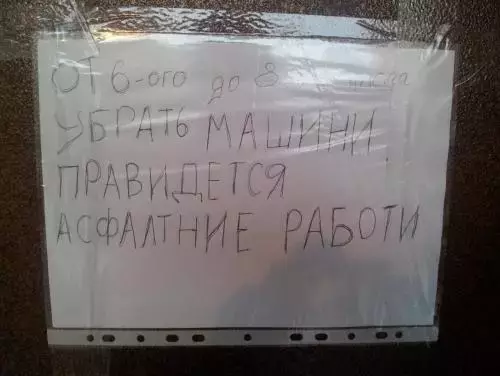 ОТ 6-ого до 8 числа
УБРАТЬ МАШИНИ
ПРАВИДЕТСЯ
АСФАЛТНИЕ РАБОТИ